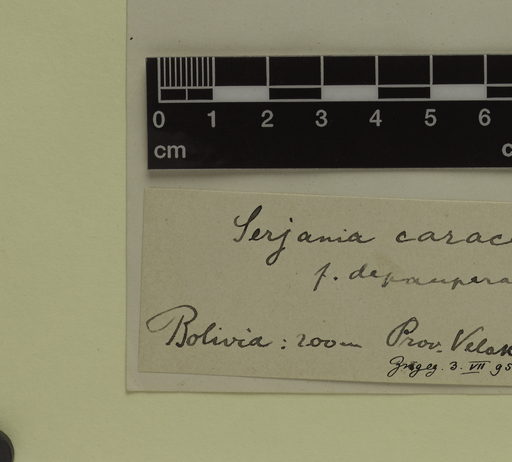 0 1 2 3 4 5 6
cm c
Serjania carac
f. depaupera
Bolivia: 200m Prov. Velas
3. VII 95